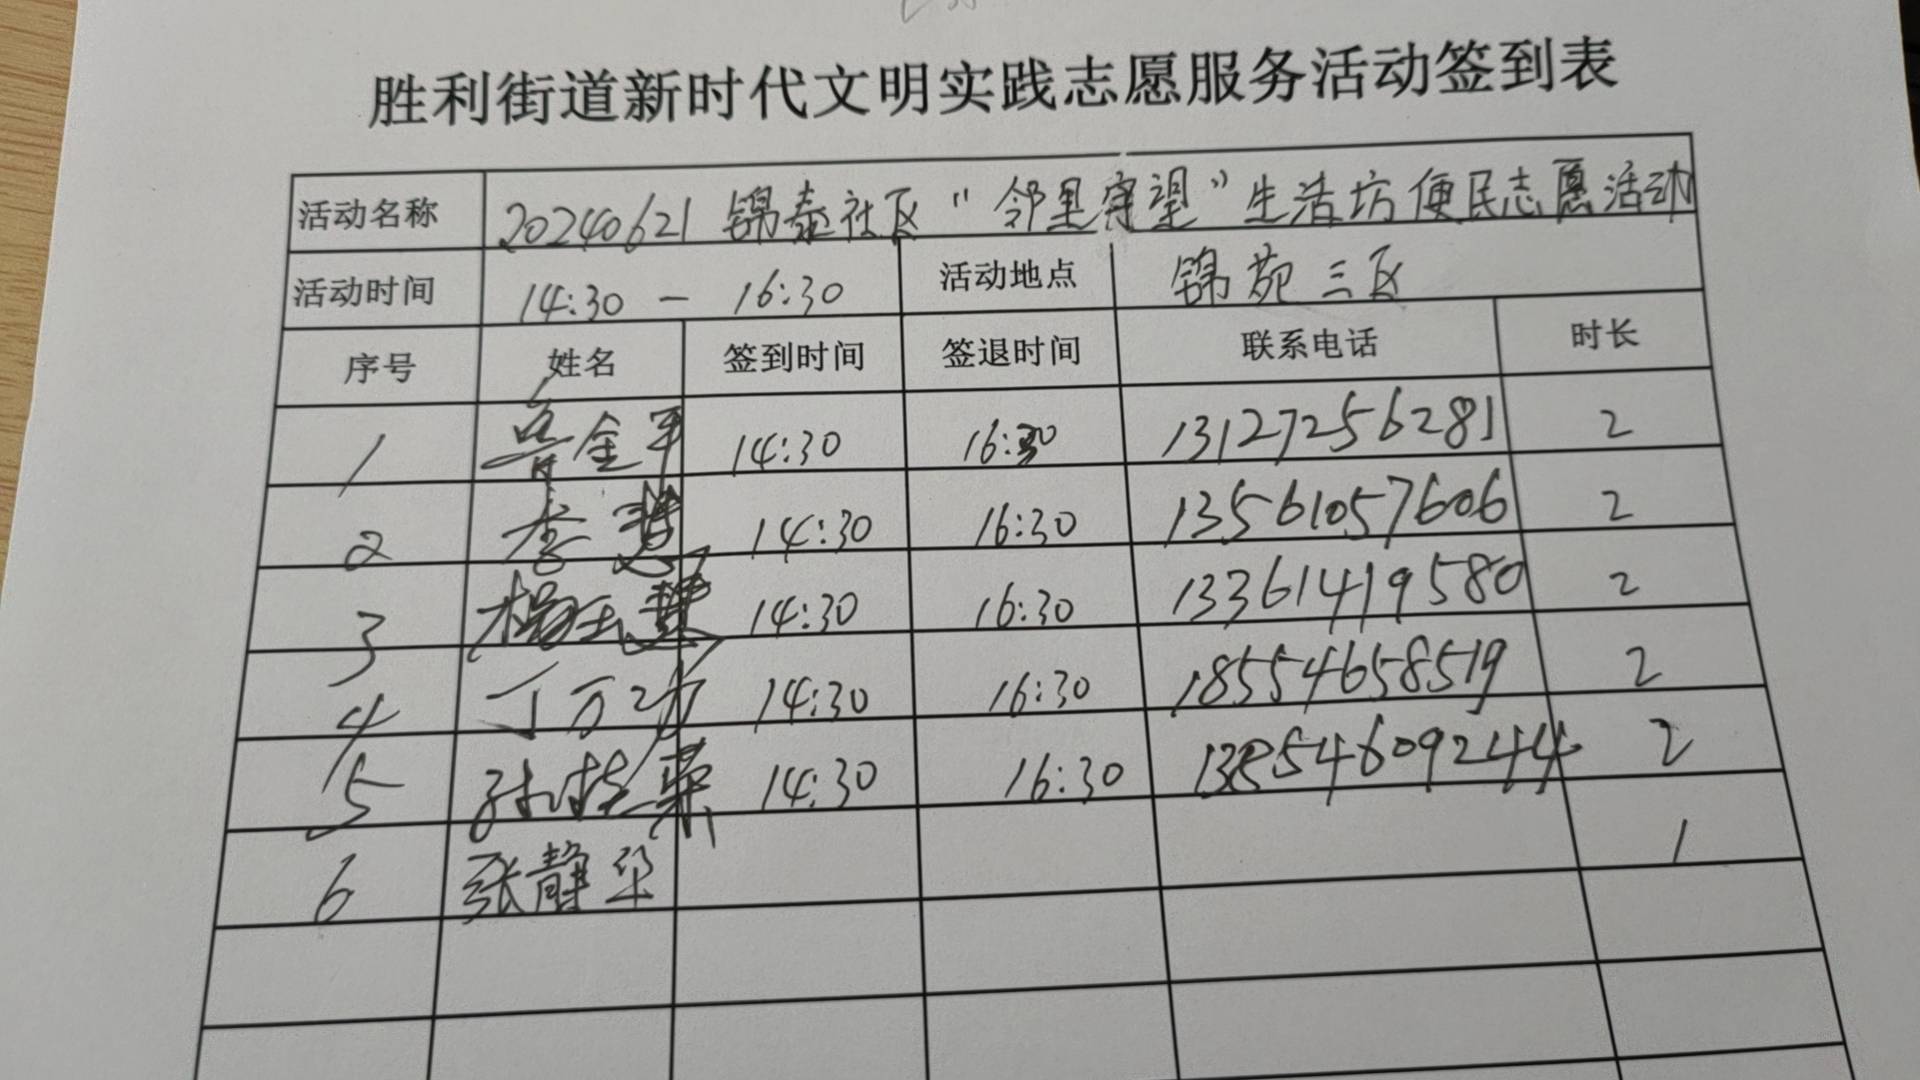 胜利街道新时代文明实践志愿服务活动签到表
活动名称 20240621 锦泰社区“邻里守望”生活坊便民志愿活动
活动时间 14:30 - 16:30 活动地点 锦苑三区
序号 姓名 签到时间 签退时间 联系电话 时长
1 金平 14:30 16:30 13127256281 2
2 李慧 14:30 16:30 13561057606 2
3 杨玉慧 14:30 16:30 13361419580 2
4 丁万功 14:30 16:30 18554658519 2
5 孙 14:30 16:30 2
6 张静 1